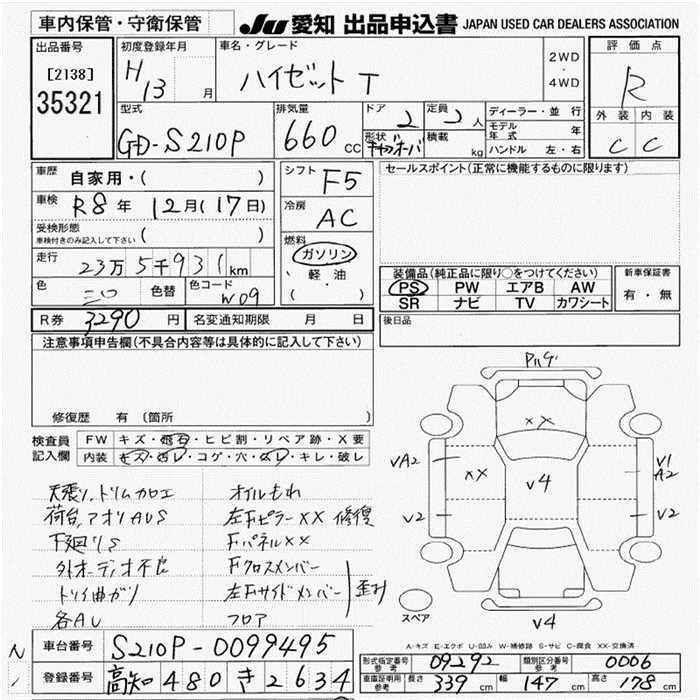 車内保管・守衛保管 JU 愛知 出品申込書 JAPAN USED CAR DEALERS ASSOCIATION
出品番号
[2138]
35321
初度登録年月
H 13 月
車名・グレード
ハイゼット T
2WD
・
4WD
評価点
R
外装 内装
C C
型式
GD-S210P
排気量
660 CC
ドア
2
形状
定員
2 人
積載
kg
ディーラー・並行
モデル年式 年
ハンドル 左・右
車歴
自家用・( )
車検
R8年 12月(17日)
受検形態
車検付きのみ記入して下さい ( )
走行
23万5千931km
色
シロ
色替
色コード
W09
シフト
F5
冷房
AC
燃料
ガソリン
・軽油
( ・ )
セールスポイント(正常に機能するものに限ります)
装備品(純正品に限り○をつけてください)
PS PW エアB AW
SR ナビ TV カワシート
新車保証書
有・無
R券 3290 円 名変通知期限 月 日
後日品
注意事項申告欄(不具合内容等は具体的に記入して下さい)
修復歴 有 〔箇所 〕
検査員
記入欄
FW キズ・飛石・ヒビ割・リペア跡・X要
内装 キズ・汚レ・コゲ・穴・スレ・キレ・破レ
天張リ、トリムカロエ
荷台、アオリAUS
下廻リS
外オーディオ不良
トリイ曲ガリ
各AU
オイルもれ
左Fピラー××修復
Fパネル××
Fクロスメンバー
左Fサイドメンバー
フロア
歪み
Pハゲ
××
VA2
××
V4
V1
A2
V2
V2
V4
スペア
A-キズ E-エクボ U-凹み W-補修跡 S-サビ C-腐食 XX-交換済
車台番号 S210P-0099495
登録番号 高知 480 き 2634
形式指定番号 参考 09292 類別区分番号 参考 0006
車庫証明用 参考 長さ 339 cm 幅 147 cm 高さ 178 cm